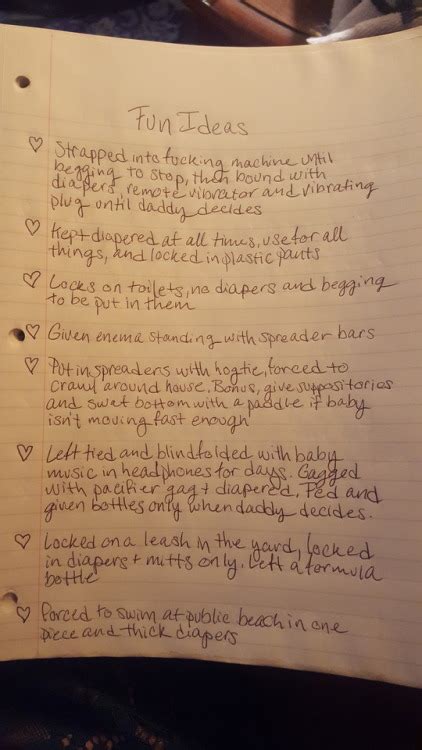 Fun Ideas
♡ Strapped into fucking machine until
begging to stop, then bound with
diapers, remote vibrator and vibrating
plug until daddy decides
♡ Kept diapered at all times, use for all
things, and locked in plastic pants
♡ Locks on toilets, no diapers and begging
to be put in them
♡ Given enema standing with spreader bars
♡ Put in spreaders with hogtie, forced to
crawl around house. Bonus, give suppositories
and swat bottom with a paddle if baby
isn't moving fast enough
♡ Left tied and blindfolded with baby
music in headphones for days. Gagged
with pacifier gag + diapered. Fed and
given bottles only when daddy decides.
♡ Locked on a leash in the yard, locked
in diapers + mitts only. Left a formula
bottle
♡ Forced to swim at public beach in one
piece and thick diapers